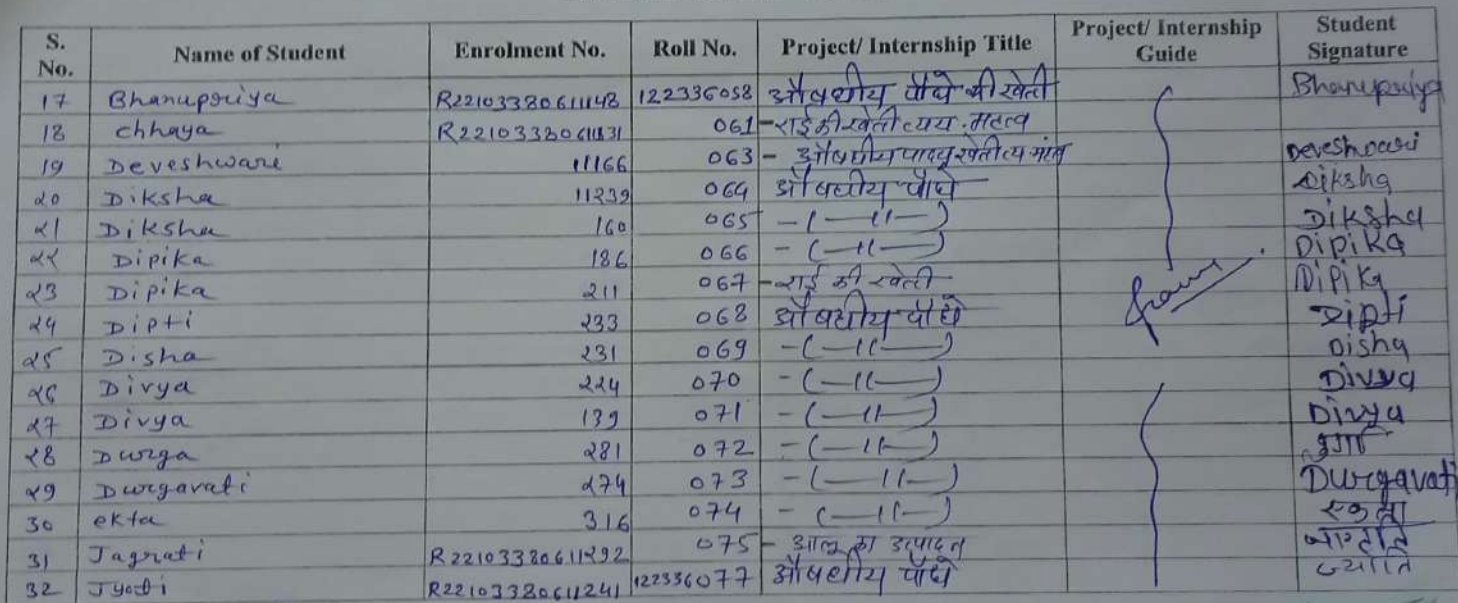 S. No. Name of Student Enrolment No. Roll No. Project/ Internship Title Project/ Internship Guide Student Signature
17 Bhanupriya R22103380611148 122336058 औषधीय पौधे की खेती Bhanupriya
18 chhaya 061 - राई की खेती महत्व
19 Deveshwari 11166 063 - Deveshwari
20 Diksha 11239 064 औषधीय पौधे Diksha
21 Diksha 160 065 - (—11—) Diksha
22 Dipika 186 066 - (—11—) Dipika
23 Dipika 211 067 - राई की खेती Dipika
24 Dipti 233 068 औषधीय पौधे Dipti
25 Disha 231 069 - (—11—) Disha
26 Divya 224 070 - (—11—) Divya
27 Divya 139 071 - (—11—) Divya
28 Durga 281 072 - (—11—)
29 Durgavati 274 073 - (—11—) Durgavati
30 ekta 316 074 - (—11—) एकता
31 Jagrati R22103380611292 075 - आलू का उत्पादन जागृति
32 Jyoti R22103380611241 122336077 औषधीय पौधे ज्योति